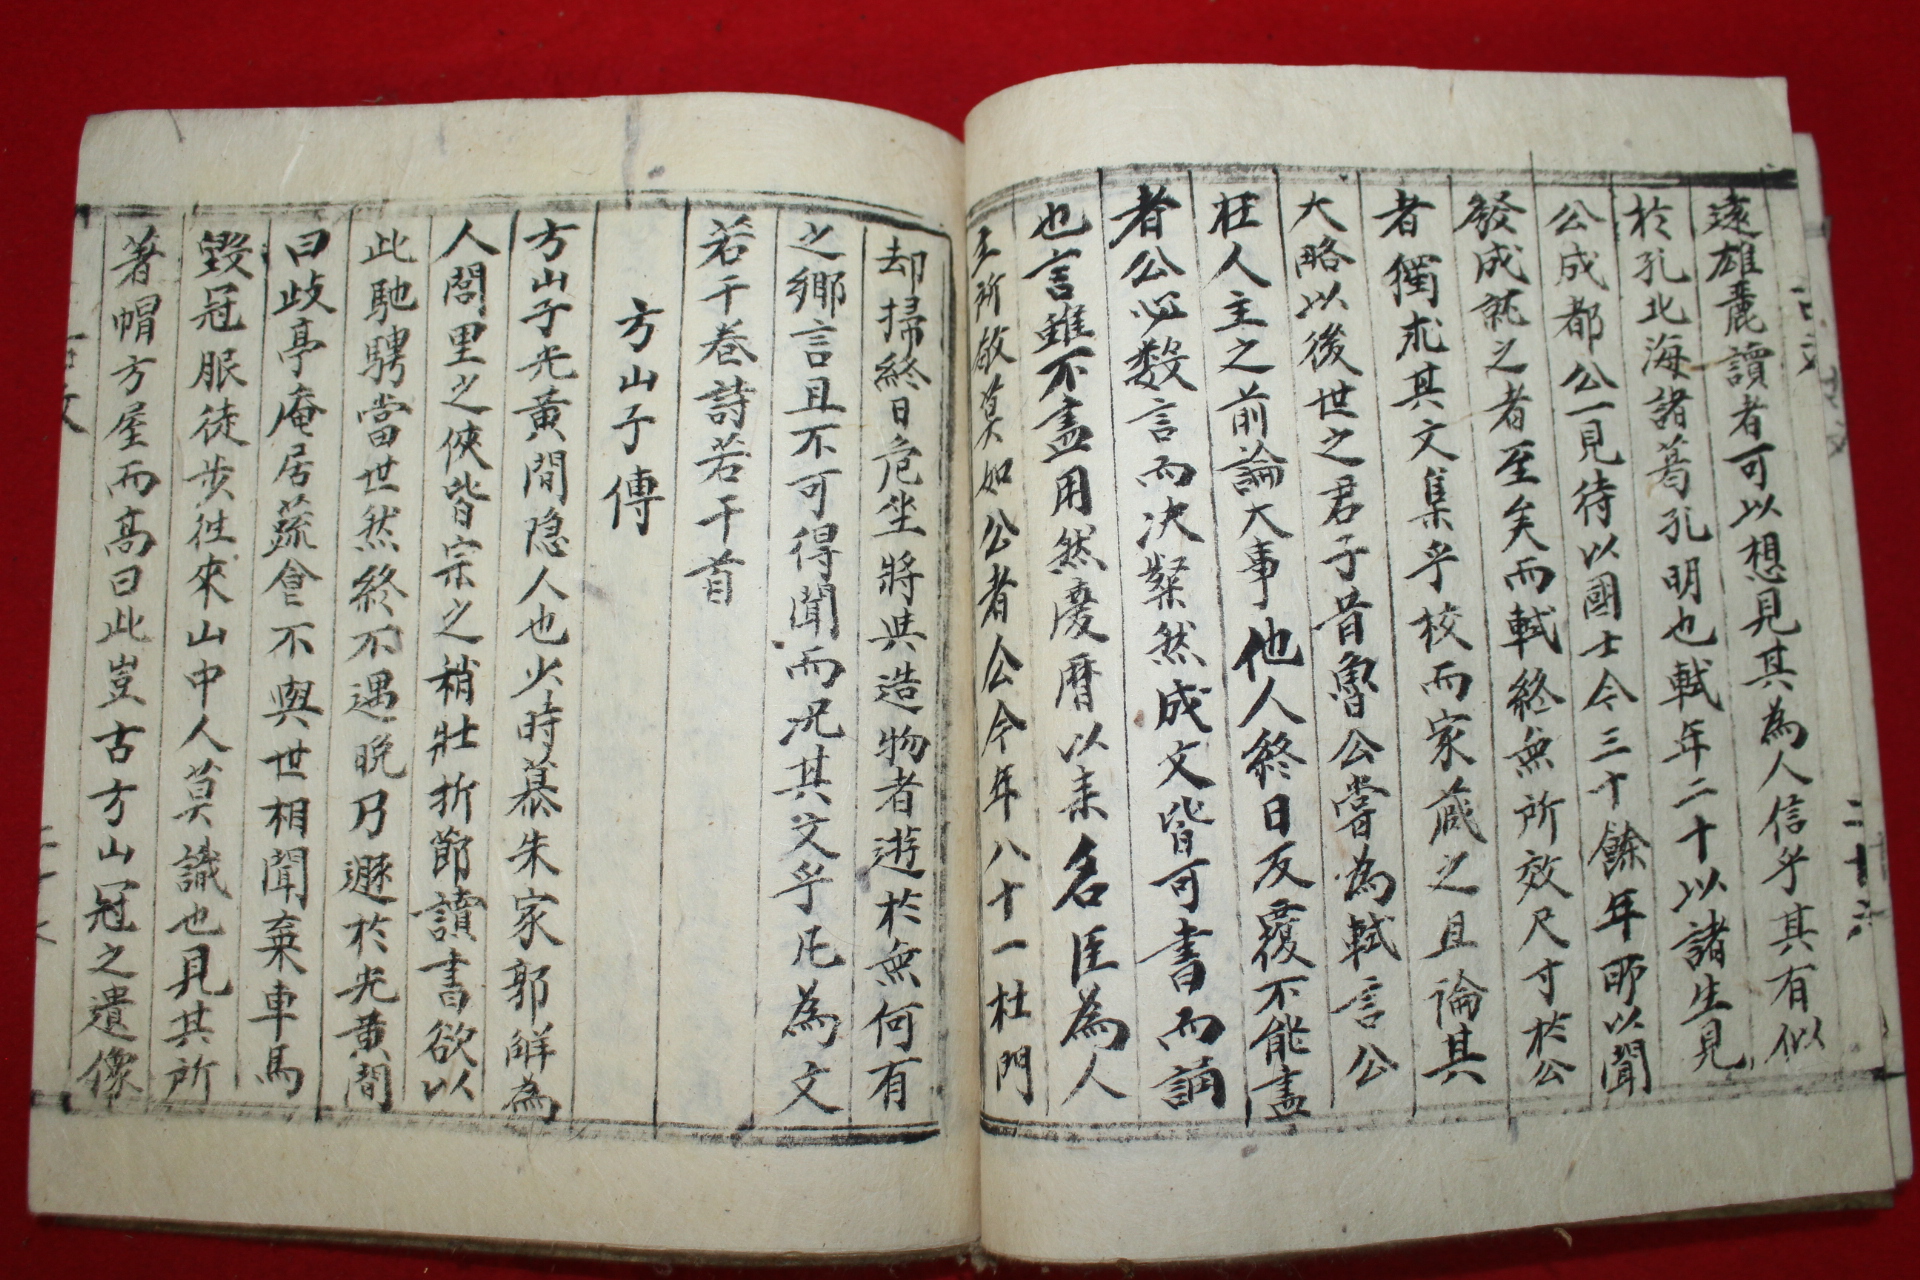 遠雄麗讀者可以想見其為人信乎其有似
於孔北海諸葛孔明也軾年二十以諸生見
公成都公一見待以國士今三十餘年所以聞
發成就之者至矣而軾終無所效尺寸於公
者獨求其文集乎校而家蔵之且論其
大略以後世之君子昔魯公嘗為軾言公
在人主之前論大事他人終日反覆不能盡
者公必数言而决粲然成文皆可書而誦
也言雖不盡用然慶曆以来名臣為人
主所敬莫如公者公今年八十一杜門
却掃終日危坐將與造物者遊於無何有
之鄉言且不可得聞而况其文乎凡為文
若干卷詩若干首
方山子傳
方山子光黃間隠人也少時慕朱家郭解為
人閭里之俠皆宗之稍壯折節讀書欲以
此馳騁當世然終不遇晚乃遯於光黃間
曰歧亭庵居蔬食不與世相聞棄車馬
毀冠服徒步往來山中人莫識也見其所
著帽方屋而高曰此豈古方山冠之遺像